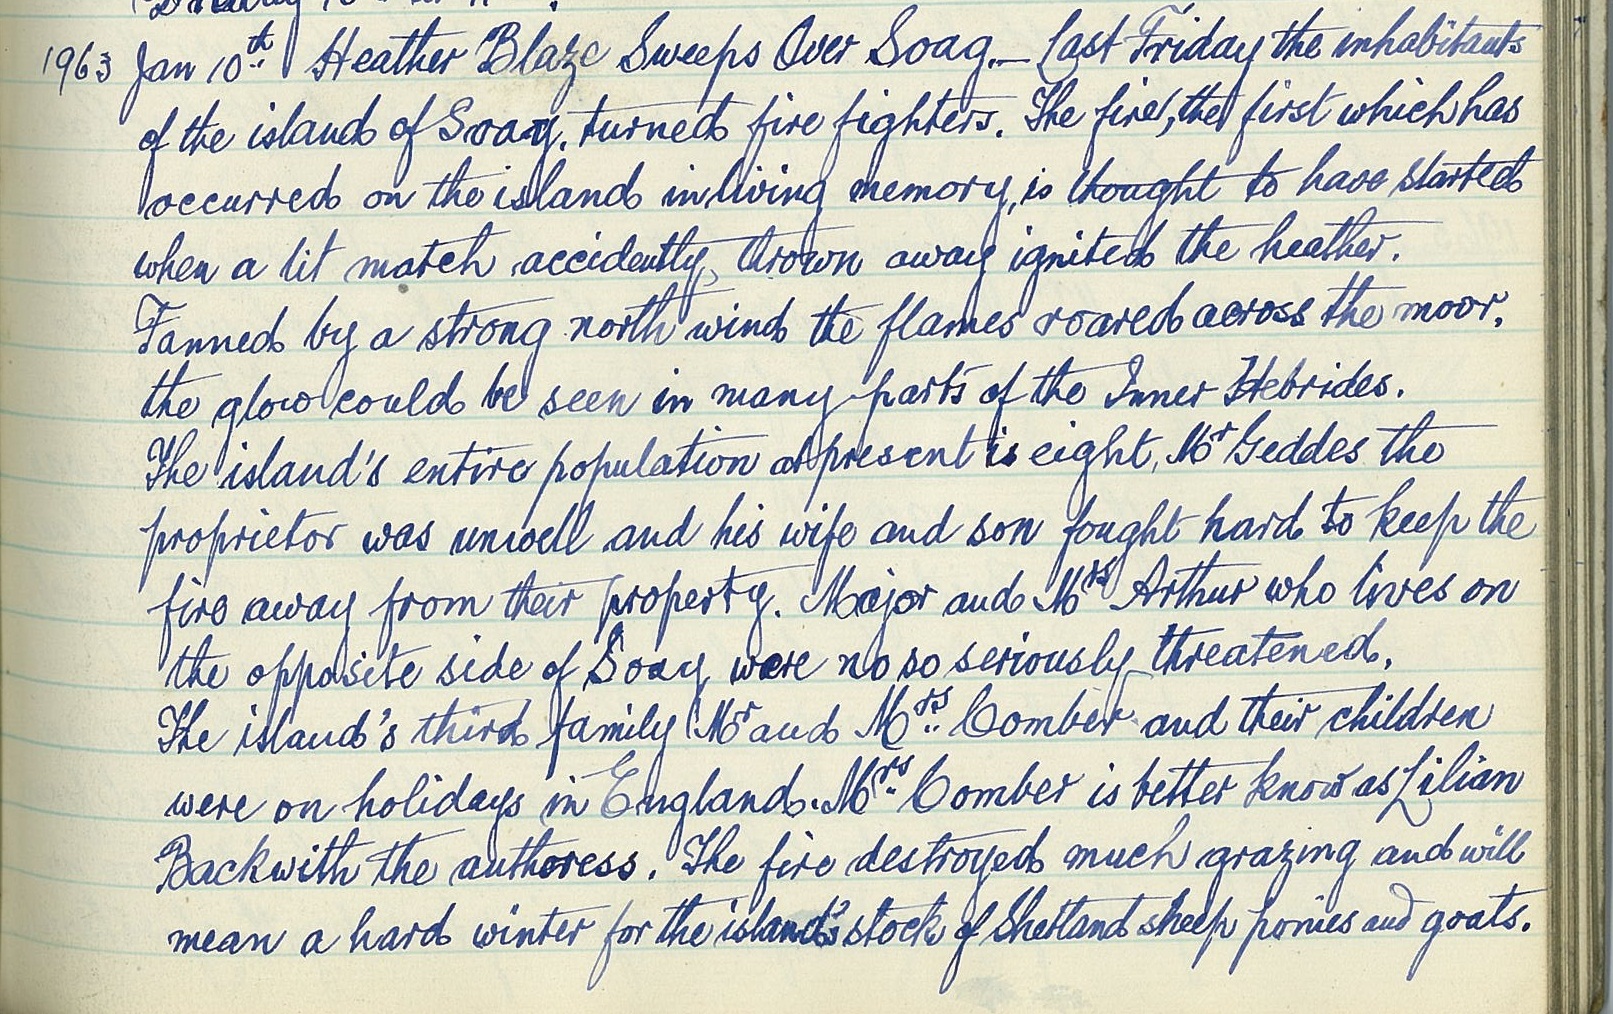 1963 Jan 10th Heather Blaze Sweeps Over Soay.— Last Friday the inhabitants
of the island of Soay, turned fire fighters. The fire, the first which has
occurred on the island in living memory, is thought to have started
when a lit match accidently, thrown away ignited the heather.
Fanned by a strong north wind the flames roared across the moor.
the glow could be seen in many parts of the Inner Hebrides.
The island's entire population at present is eight, Mr Geddes the
proprietor was unwell and his wife and son fought hard to keep the
fire away from their property. Major and Mrs Arthur who lives on
the opposite side of Soay were no so seriously threatened.
The island's third family Mr and Mrs Comber and their children
were on holidays in England. Mrs Comber is better know as Lilian
Backwith the authoress. The fire destroyed much grazing and will
mean a hard winter for the island's stock of Shetland sheep ponies and goats.